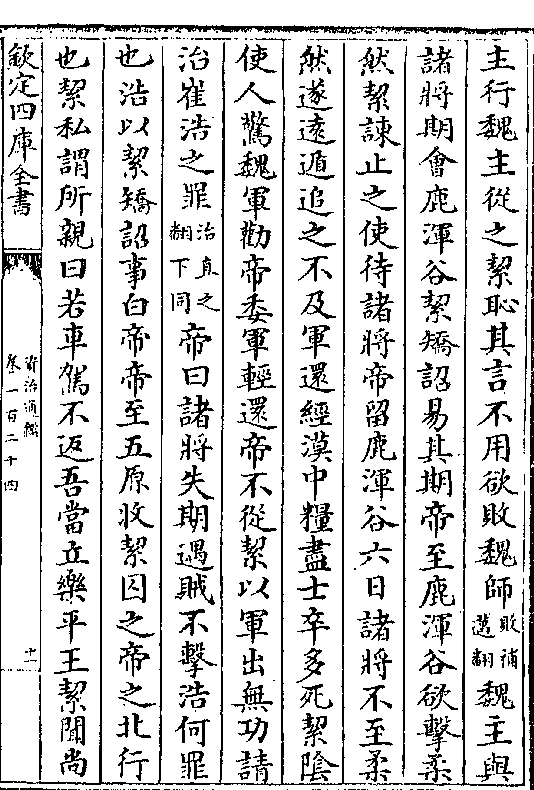 主行魏主從之絜恥其言不用欲敗魏師敗補邁翻魏主與
諸將期會鹿渾谷絜矯詔易其期帝至鹿渾谷欲擊柔
然絜諫止之使待諸將帝留鹿渾谷六日諸將不至柔
然遂遠遁追之不及軍還經漠中糧盡士卒多死絜陰
使人驚魏軍勸帝委軍輕還帝不從絜以軍出無功請
治崔浩之罪治直之翻下同帝曰諸將失期遇賊不擊浩何罪
也浩以絜矯詔事白帝帝至五原收絜囚之帝之北行
也絜私謂所親曰若車駕不返吾當立樂平王絜聞尚
欽定四庫全書
資治通鑑
卷一百二十四
十一